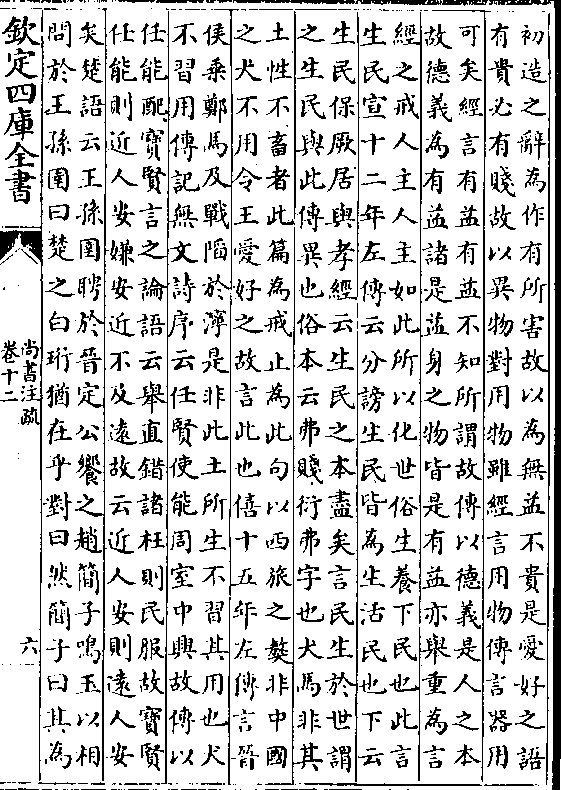 初造之辭為作有所害故以為無益不貴是愛好之語
有貴必有賤故以異物對用物雖經言用物傳言器用
可矣經言有益有益不知所謂故傳以德義是人之本
故德義為有益諸是益身之物皆是有益亦舉重為言
經之戒人主人主如此所以化世俗生養下民也此言
生民宣十二年左傳云分謗生民皆為生活民也下云
生民保厥居與孝經云生民之本盡矣言民生於世謂
之生民與此傳異也俗本云弗賤衍弗字也犬馬非其
土性不畜者此篇為戒止為此句以西旅之獒非中國
之犬不用令王愛好之故言此也僖十五年左傳言晉
侯乘鄭馬及戰陷於濘是非此土所生不習其用也犬
不習用傳記無文詩序云任賢使能周室中興故傳以
任能配寳賢言之論語云舉直錯諸枉則民服故寳賢
任能則近人安嫌安近不及遠故云近人安則遠人安
矣楚語云王孫圉聘於晉定公饗之趙簡子鳴玉以相
問於王孫圉曰楚之白珩猶在乎對曰然簡子曰其為
欽定四庫全書
尚書注疏
卷十二
六